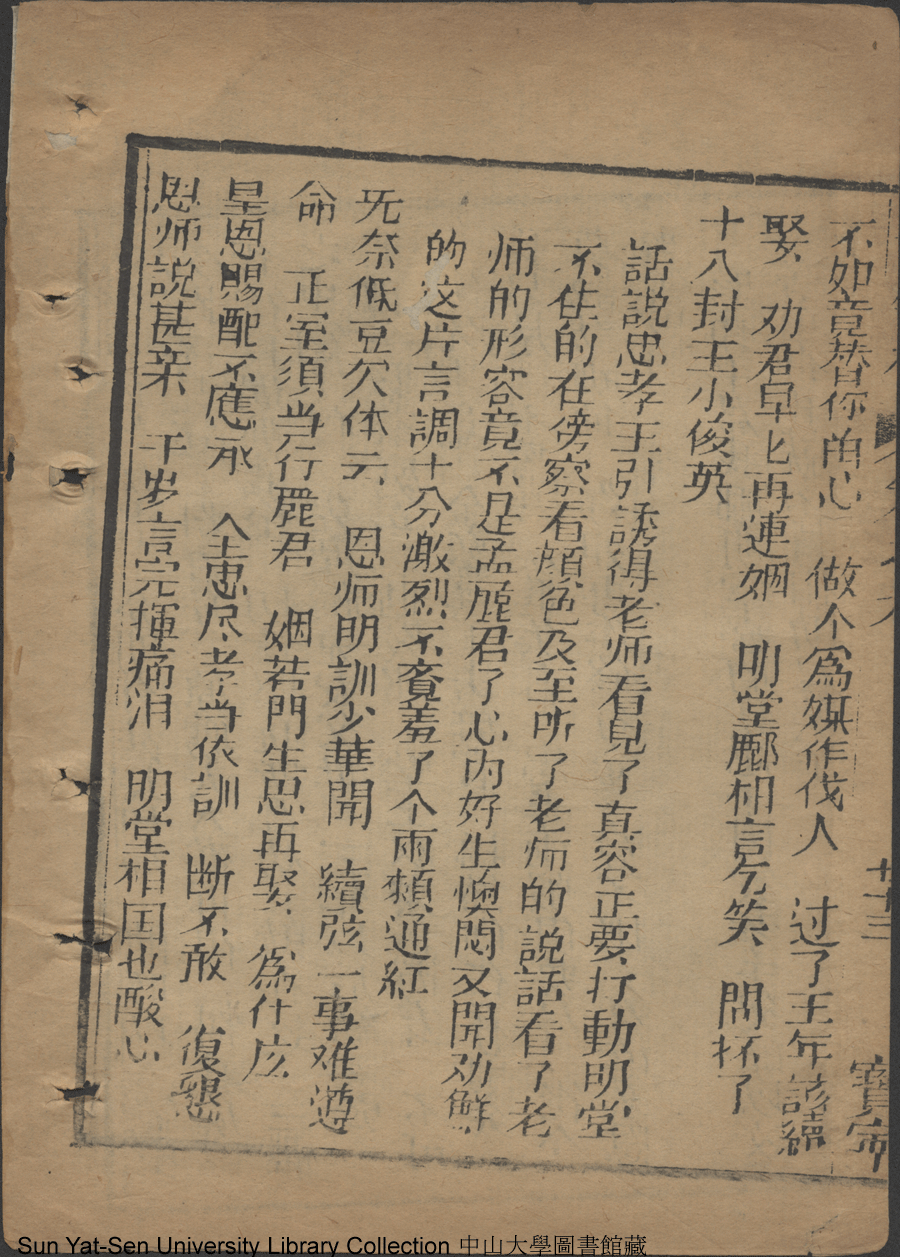 不如竟替你的心　做个為媒作伐人　过了王年該續
娶　劝君早匕再連姻　明堂酈相言欠笑　問杯了
十八封王小俊英
話説忠孝王引誘得老师看見了真容正要打動明堂
不住的在傍察看顔色及至听了老师的説話看了老
师的形容竟不是孟麗君了心内好生懊悶又聞劝觧
的这片言調十分激烈不覔羞了个兩頰通紅
旡奈低豆欠体云　恩师明訓少華聞　續弦一事难遵
命　正室須当行麗君　姻若門生思再娶　為什庅
皇恩賜配不應承　全忠尽孝当依訓　断不敢　復懇
恩师說甚亲　千岁言完揮痛泪　明堂相国也酸心
廿三
寳宁
Sun Yat-Sen University Library Collection 中山大學圖書館藏